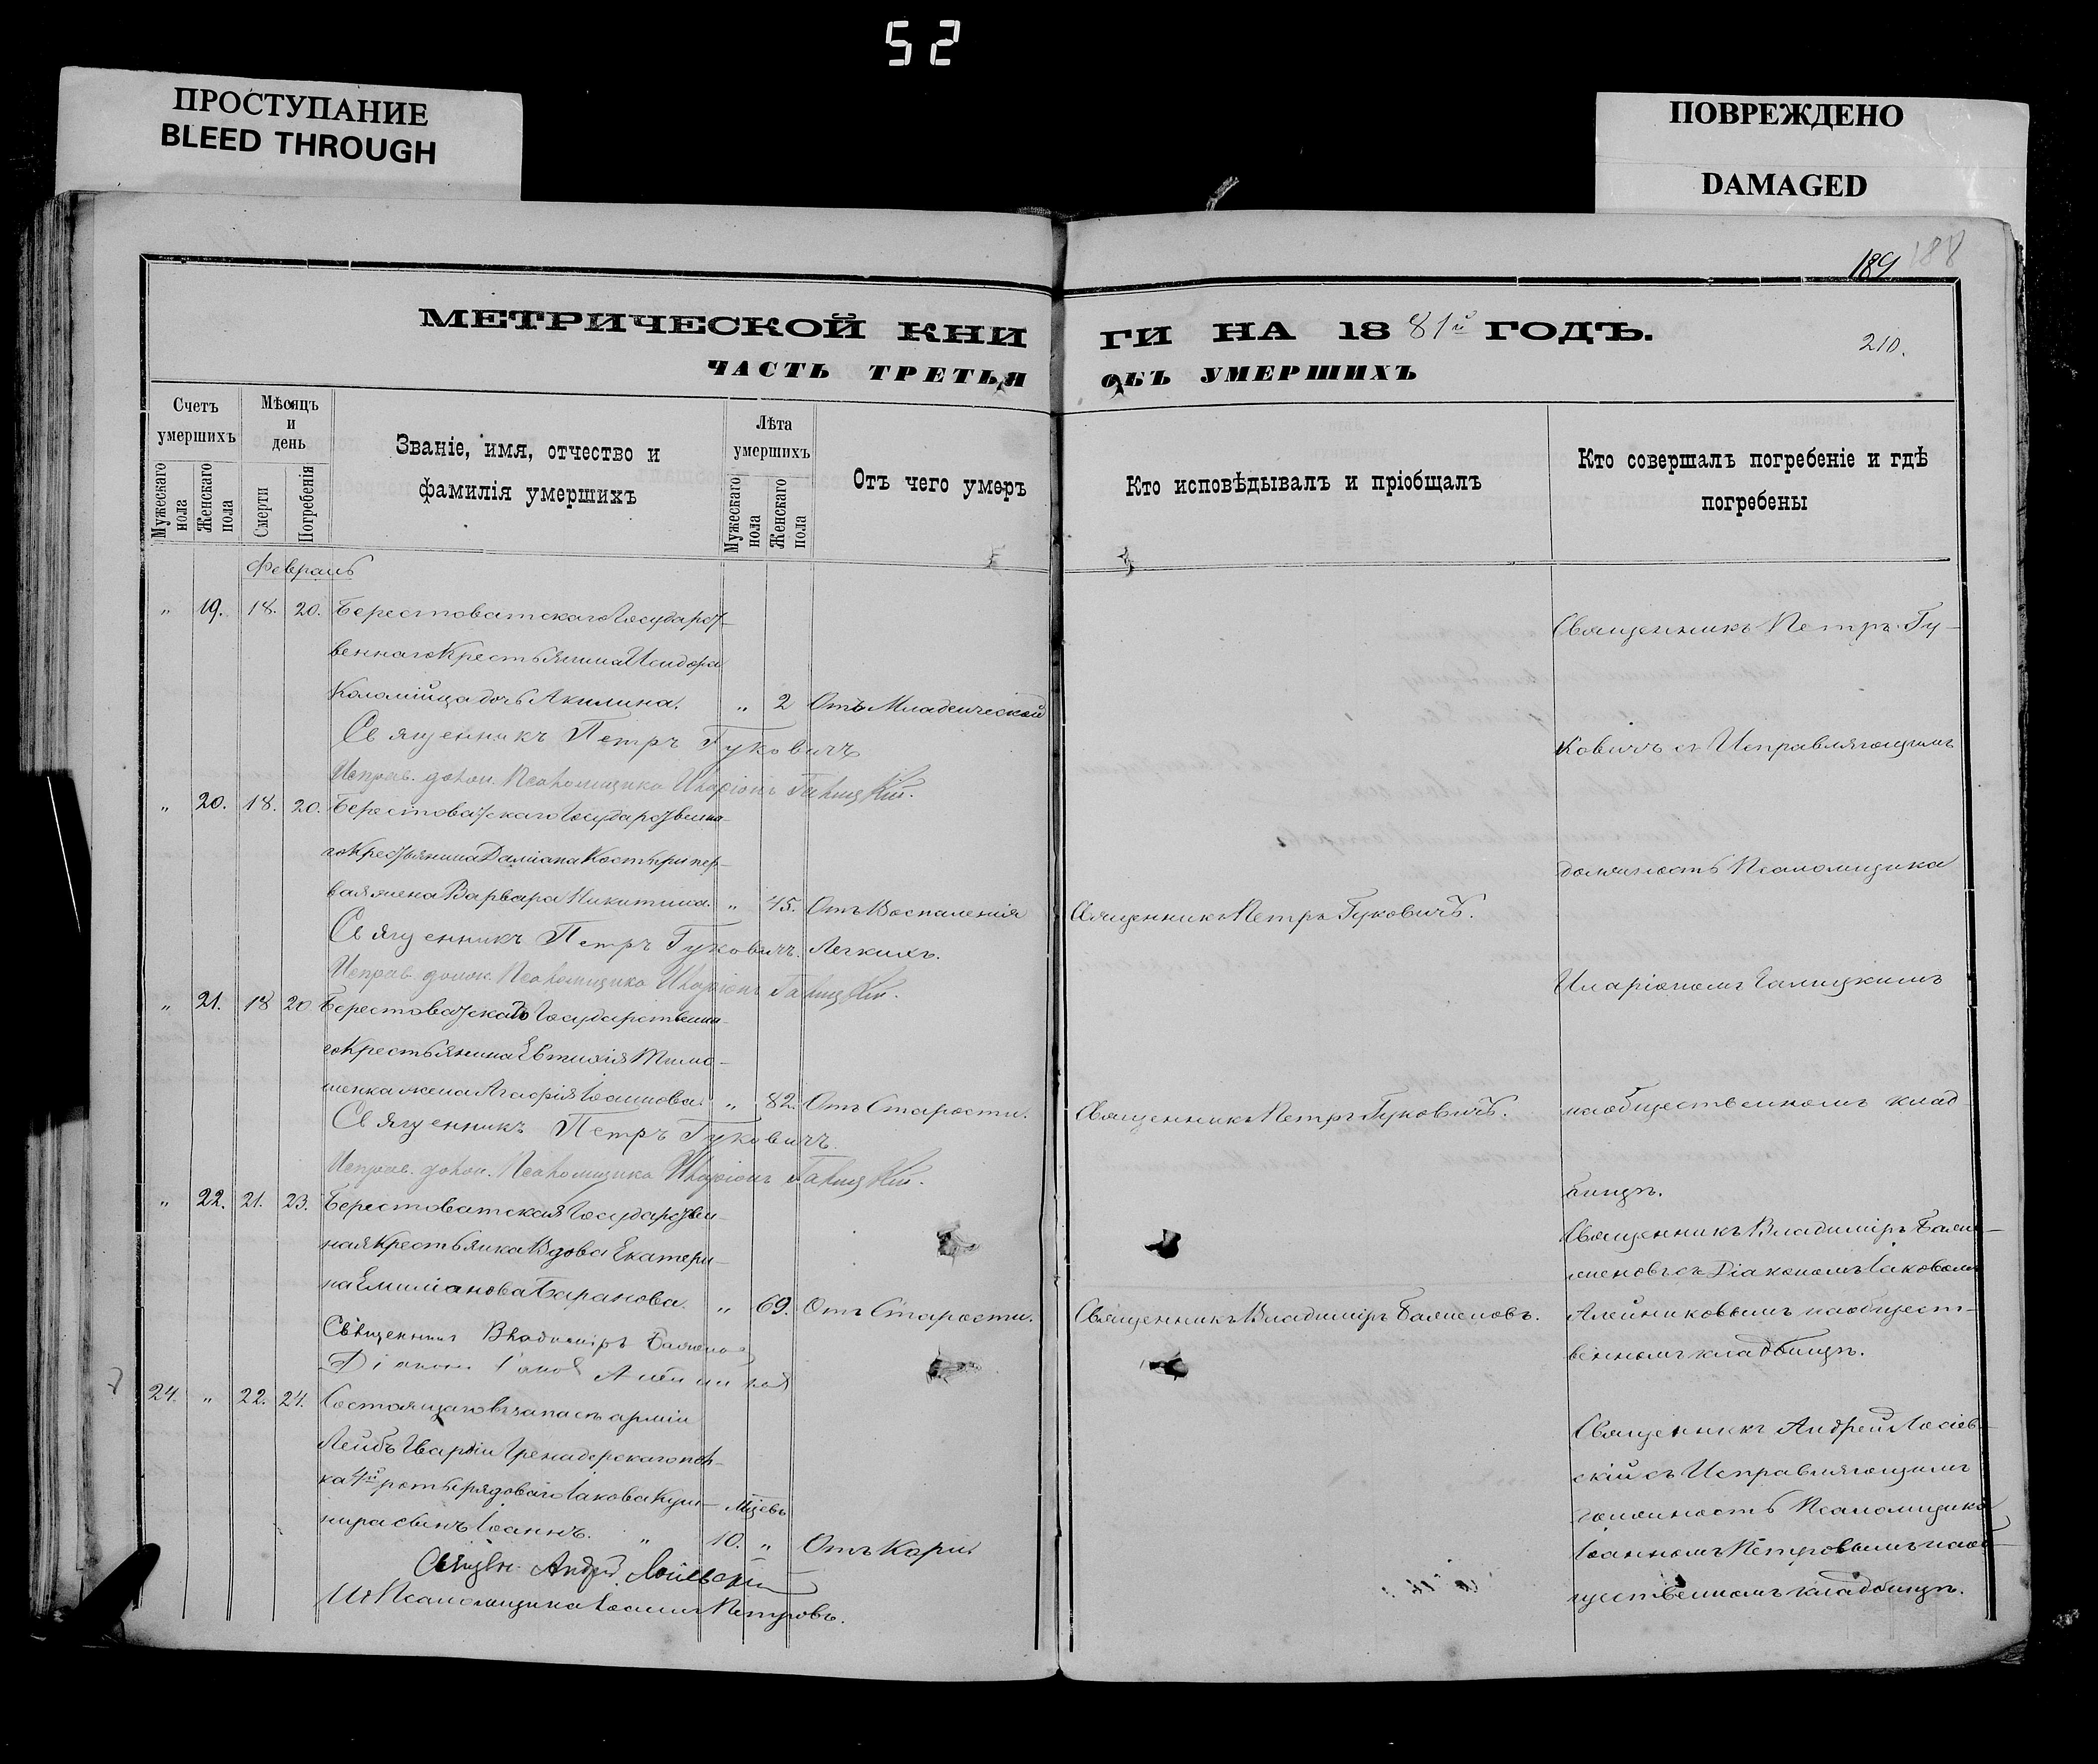 52
ПРОСТУПАНИЕ
BLEED THROUGH
ПОВРЕЖДЕНО
DAMAGED
189 188
МЕТРИЧЕСКОЙ КНИ
ГИ НА 1881й ГОДЪ.
210.
ЧАСТЬ ТРЕТЬЯ
ОБЪ УМЕРШИХЪ
Счетъ умершихъ
Мужескаго пола
Женскаго пола
Мѣсяцъ и день
Смерти
Погребенія
Званіе, имя, отчество и
фамилія умершихъ
Лѣта умершихъ
Мужескаго пола
Женскаго пола
Отъ чего умеръ
Кто исповѣдывалъ и пріобщалъ
Кто совершалъ погребеніе и гдѣ
погребены
Февраль
" 19. 18. 20. Берестоватскаго Государст-
веннаго Крестьянина Исидора
Коломійца дочь Акилина. " 2 Отъ Младенческой
Священникъ Петръ Гуковичъ
Исправ. долж. Псаломщика Иларіонъ Галицкій.
Священникъ Петръ Гу-
ковичъ съ Исправляющимъ
" 20. 18. 20. Берестоватскаго Государственна-
го Крестьянина Даміана Кос
вая жена Варвара Никитина. " 45. Отъ Воспаленія
Священникъ Петръ Гуковичъ. Легкихъ.
Исправ. долж. Псаломщика Иларіонъ Галицкій.
Священникъ Петръ Гуковичъ.
должность Псаломщика
Иларіономъ Галицкимъ
" 21. 18 20 Берестоватскаго Государственна-
го Крестьянина Евтихія Тимо-
шенка жена Агафія Іоаннова. " 82. Отъ Старости.
Священникъ Петръ Гуковичъ.
Исправ. долж. Псаломщика Иларіонъ Галицкій.
Священникъ Петръ Гуковичъ.
на общественномъ клад-
бищѣ.
" 22. 21. 23. Берестоватская Государствен-
ная Крестьянка Вдова Екатери-
на Емиліанова Баранова. " 69. Отъ Старости.
Священникъ Владиміръ
Діаконъ Іаковъ Алейниковъ
Священникъ Владиміръ
Священникъ Владиміръ
съ Діакономъ Іаковомъ
Алейниковымъ на общест-
венномъ кладбищѣ.
24. " 22. 24. Состоящаго въ запасѣ арміи
Лейбъ Гвардіи Гренадерскаго пол-
ка 4й роты рядоваго Іакова Куш-
нира сынъ Іоаннъ. " Мцевъ 10. " Отъ Кори.
Священ. Андрей
И. д. Псаломщика Іоаннъ Петровъ.
Священникъ Андрей
скій съ Исправляющимъ
должность Псаломщика
Іоанномъ Петровымъ на об-
щественномъ кладбищѣ.